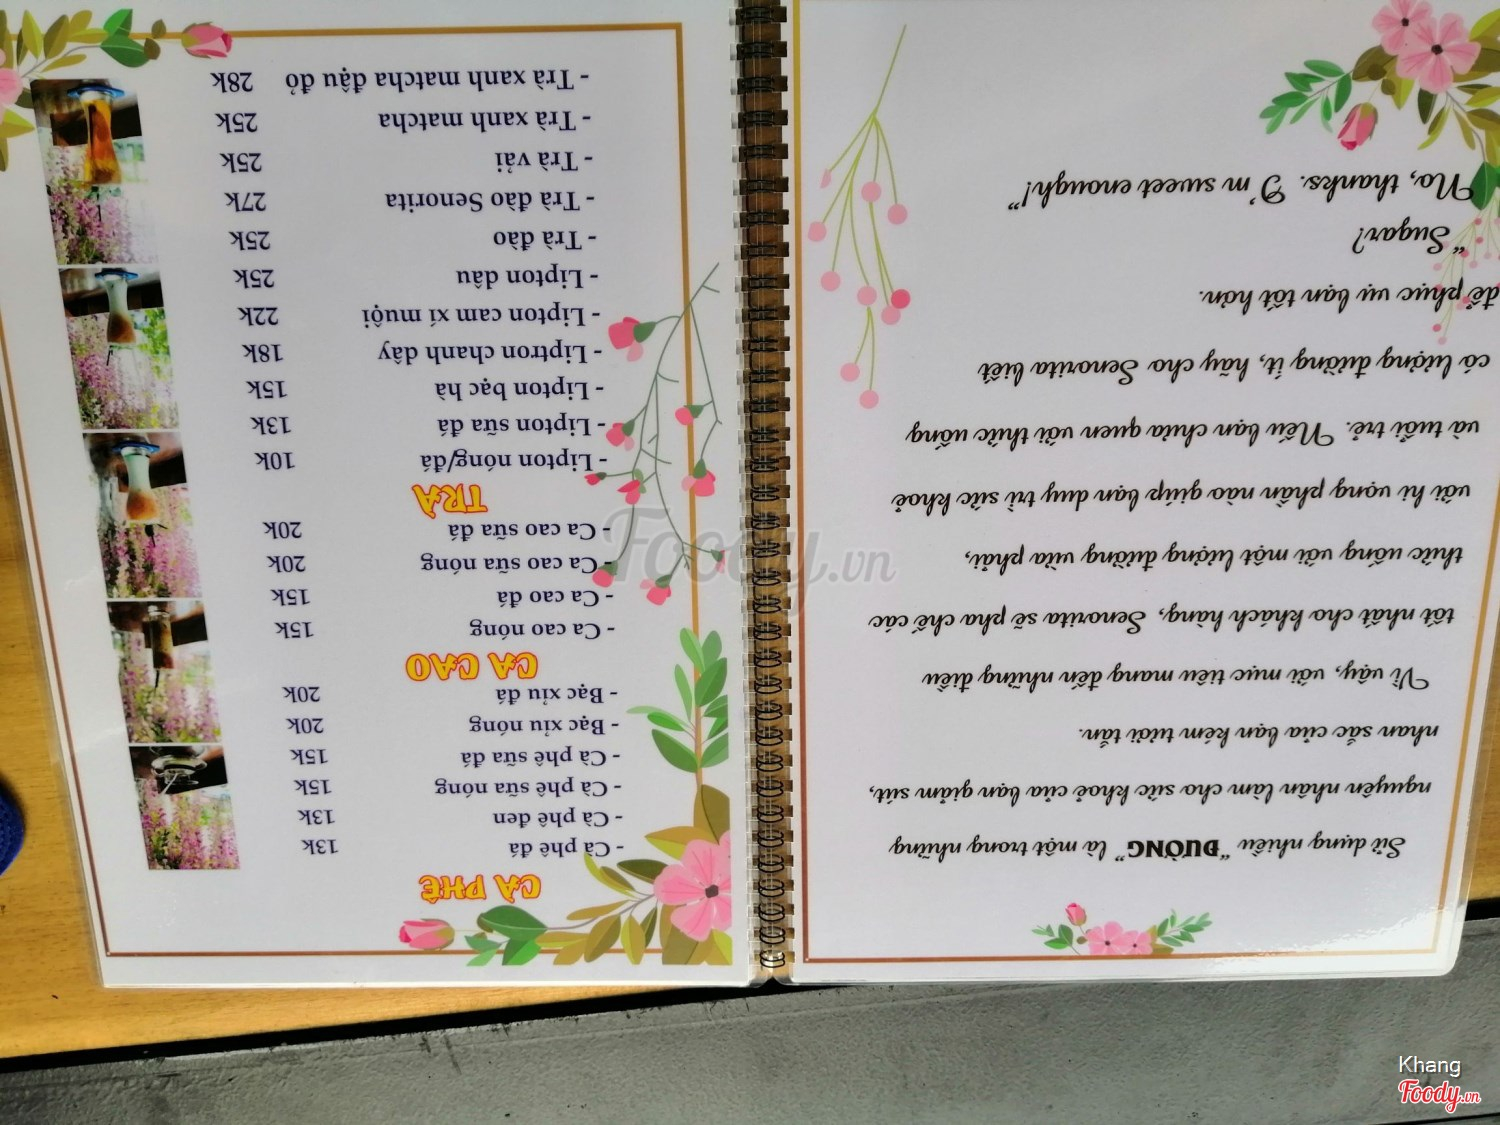 Sử dụng nhiều "ĐƯỜNG" là một trong những
nguyên nhân làm cho sức khoẻ của bạn giảm sút,
nhan sắc của bạn kém tươi tắn.
Vì vậy, với mục tiêu mang đến những điều
tốt nhất cho khách hàng, Senorita sẽ pha chế các
thức uống với một lượng đường vừa phải,
với hi vọng phần nào giúp bạn duy trì sức khoẻ
và tuổi trẻ. Nếu bạn chưa quen với thức uống
có lượng đường ít, hãy cho Senorita biết
để phục vụ bạn tốt hơn.
"Sugar?
No, thanks. I'm sweet enough!"
CÀ PHÊ
- Cà phê đá 13k
- Cà phê đen 13k
- Cà phê sữa nóng 15k
- Cà phê sữa đá 15k
- Bạc xỉu nóng 20k
- Bạc xỉu đá 20k
CA CAO
- Ca cao nóng 15k
- Ca cao đá 15k
- Ca cao sữa nóng 20k
- Ca cao sữa đá 20k
TRÀ
- Lipton nóng/đá 10k
- Lipton sữa đá 13k
- Lipton bạc hà 15k
- Liptron chanh dây 18k
- Lipton cam xí muội 22k
- Lipton dâu 25k
- Trà đào 25k
- Trà đào Senorita 27k
- Trà vải 25k
- Trà xanh matcha 25k
- Trà xanh matcha đậu đỏ 28k
Foody.vn
Khang
Foody.vn